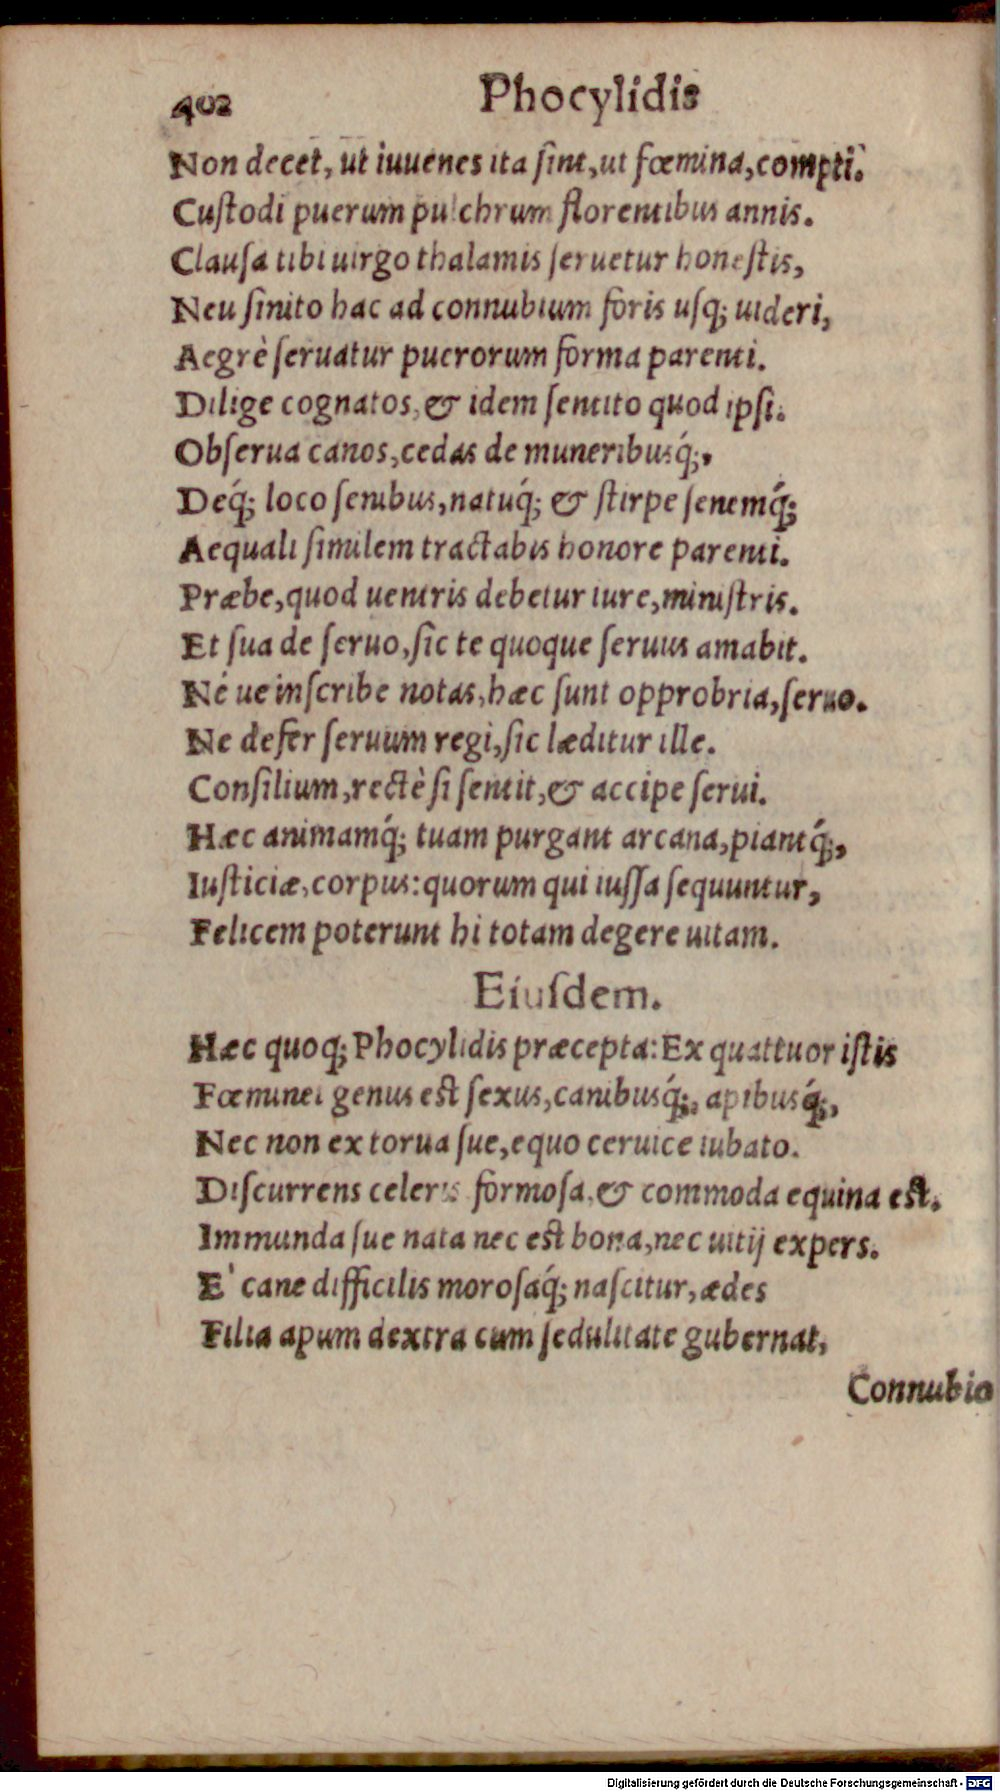 402 Phocylidis
Non decet, ut iuuenes ita ſint, ut fœmina, compti.
Cuſtodi puerum pulchrum florentibus annis.
Clauſa tibi uirgo thalamis ſeruetur honeſtis,
Neu ſinito hac ad connubium foris uſq; uideri,
Aegrè ſeruatur puerorum forma parenti.
Dilige cognatos, & idem ſentito quod ipſi.
Obſerua canos, cedas de muneribusq́;,
Deq́; loco ſenibus, natuq́; & ſtirpe ſenemq́;
Aequali ſimilem tractabis honore parenti.
Præbe, quod uentris debetur iure, miniſtris.
Et ſua de ſeruo, ſic te quoque ſeruus amabit.
Né ue inſcribe notas, hæc ſunt opprobria, ſeruo.
Ne defer ſeruum regi, ſic læditur ille.
Conſilium, rectè ſi ſentit, & accipe ſerui.
Hæc animamq́; tuam purgant arcana, piantq́;,
Iuſticiæ, corpus: quorum qui iuſſa ſequuntur,
Felicem poterunt hi totam degere uitam.
Eiuſdem.
Hæc quoq; Phocylidis præcepta: Ex quattuor iſtis
Fœminei genus eſt ſexus, canibusq́;, apibusq́;,
Nec non ex torua ſue, equo ceruice iubato.
Diſcurrens celeris formoſa, & commoda equina eſt.
Immunda ſue nata nec eſt bona, nec uitij expers.
E' cane difficilis moroſaq́; naſcitur, ædes
Filia apum dextra cum ſedulitate gubernat,
Connubio
Digitalisierung gefördert durch die Deutsche Forschungsgemeinschaft - DFG